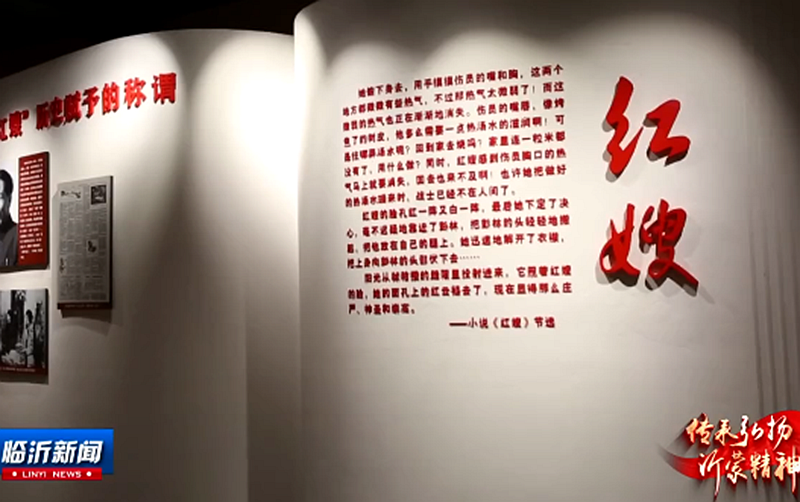 红嫂”历史赋予的称谓
她俯下身去，用手摸摸伤员的嘴和胸，这两个
地方都微微有些热气，不过那热气太微弱了！而这
微弱的热气也正在渐渐地消失。伤员的嘴唇，像烤
他多么需要一点热汤水的滋润啊！可
是往哪弄汤水呢？回到家去烧吗？家里连一粒米都
没有了，用什么做？同时，红嫂感到伤员胸口的热
气马上就要消失，回去也来不及啊！也许她把做好
的热汤水端来时，战士已经不在人间了。
红嫂的脸孔红一阵又白一阵，最后她下定了决
心，毫不迟疑地靠近了彭林，把彭林的头轻轻地搬
起，把他放在自己的腿上。她迅速地解开了衣襟，
把上身向彭林的头部伏下去……
阳光从被拴着的缝隙里投射进来，它照着红嫂
的脸，她的面孔上的红云褪去了，现在显得那么庄
严、神圣和崇高。
——小说《红嫂》节选
红嫂
临沂新闻
LINYI NEWS
传承弘扬
沂蒙精神